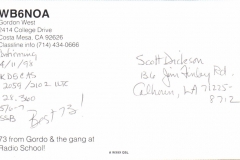 WB6NOA
Gordon West
2414 College Drive
Costa Mesa, CA 92626
Classline info (714) 434-0666
4/11/98
2059/2102 UTC
28.360
SSB
Best 73!
Scott Dickson
136 Jim Finley Rd.
Calhoun, LA 71225-
8712
73 from Gordo & the gang at
Radio School!